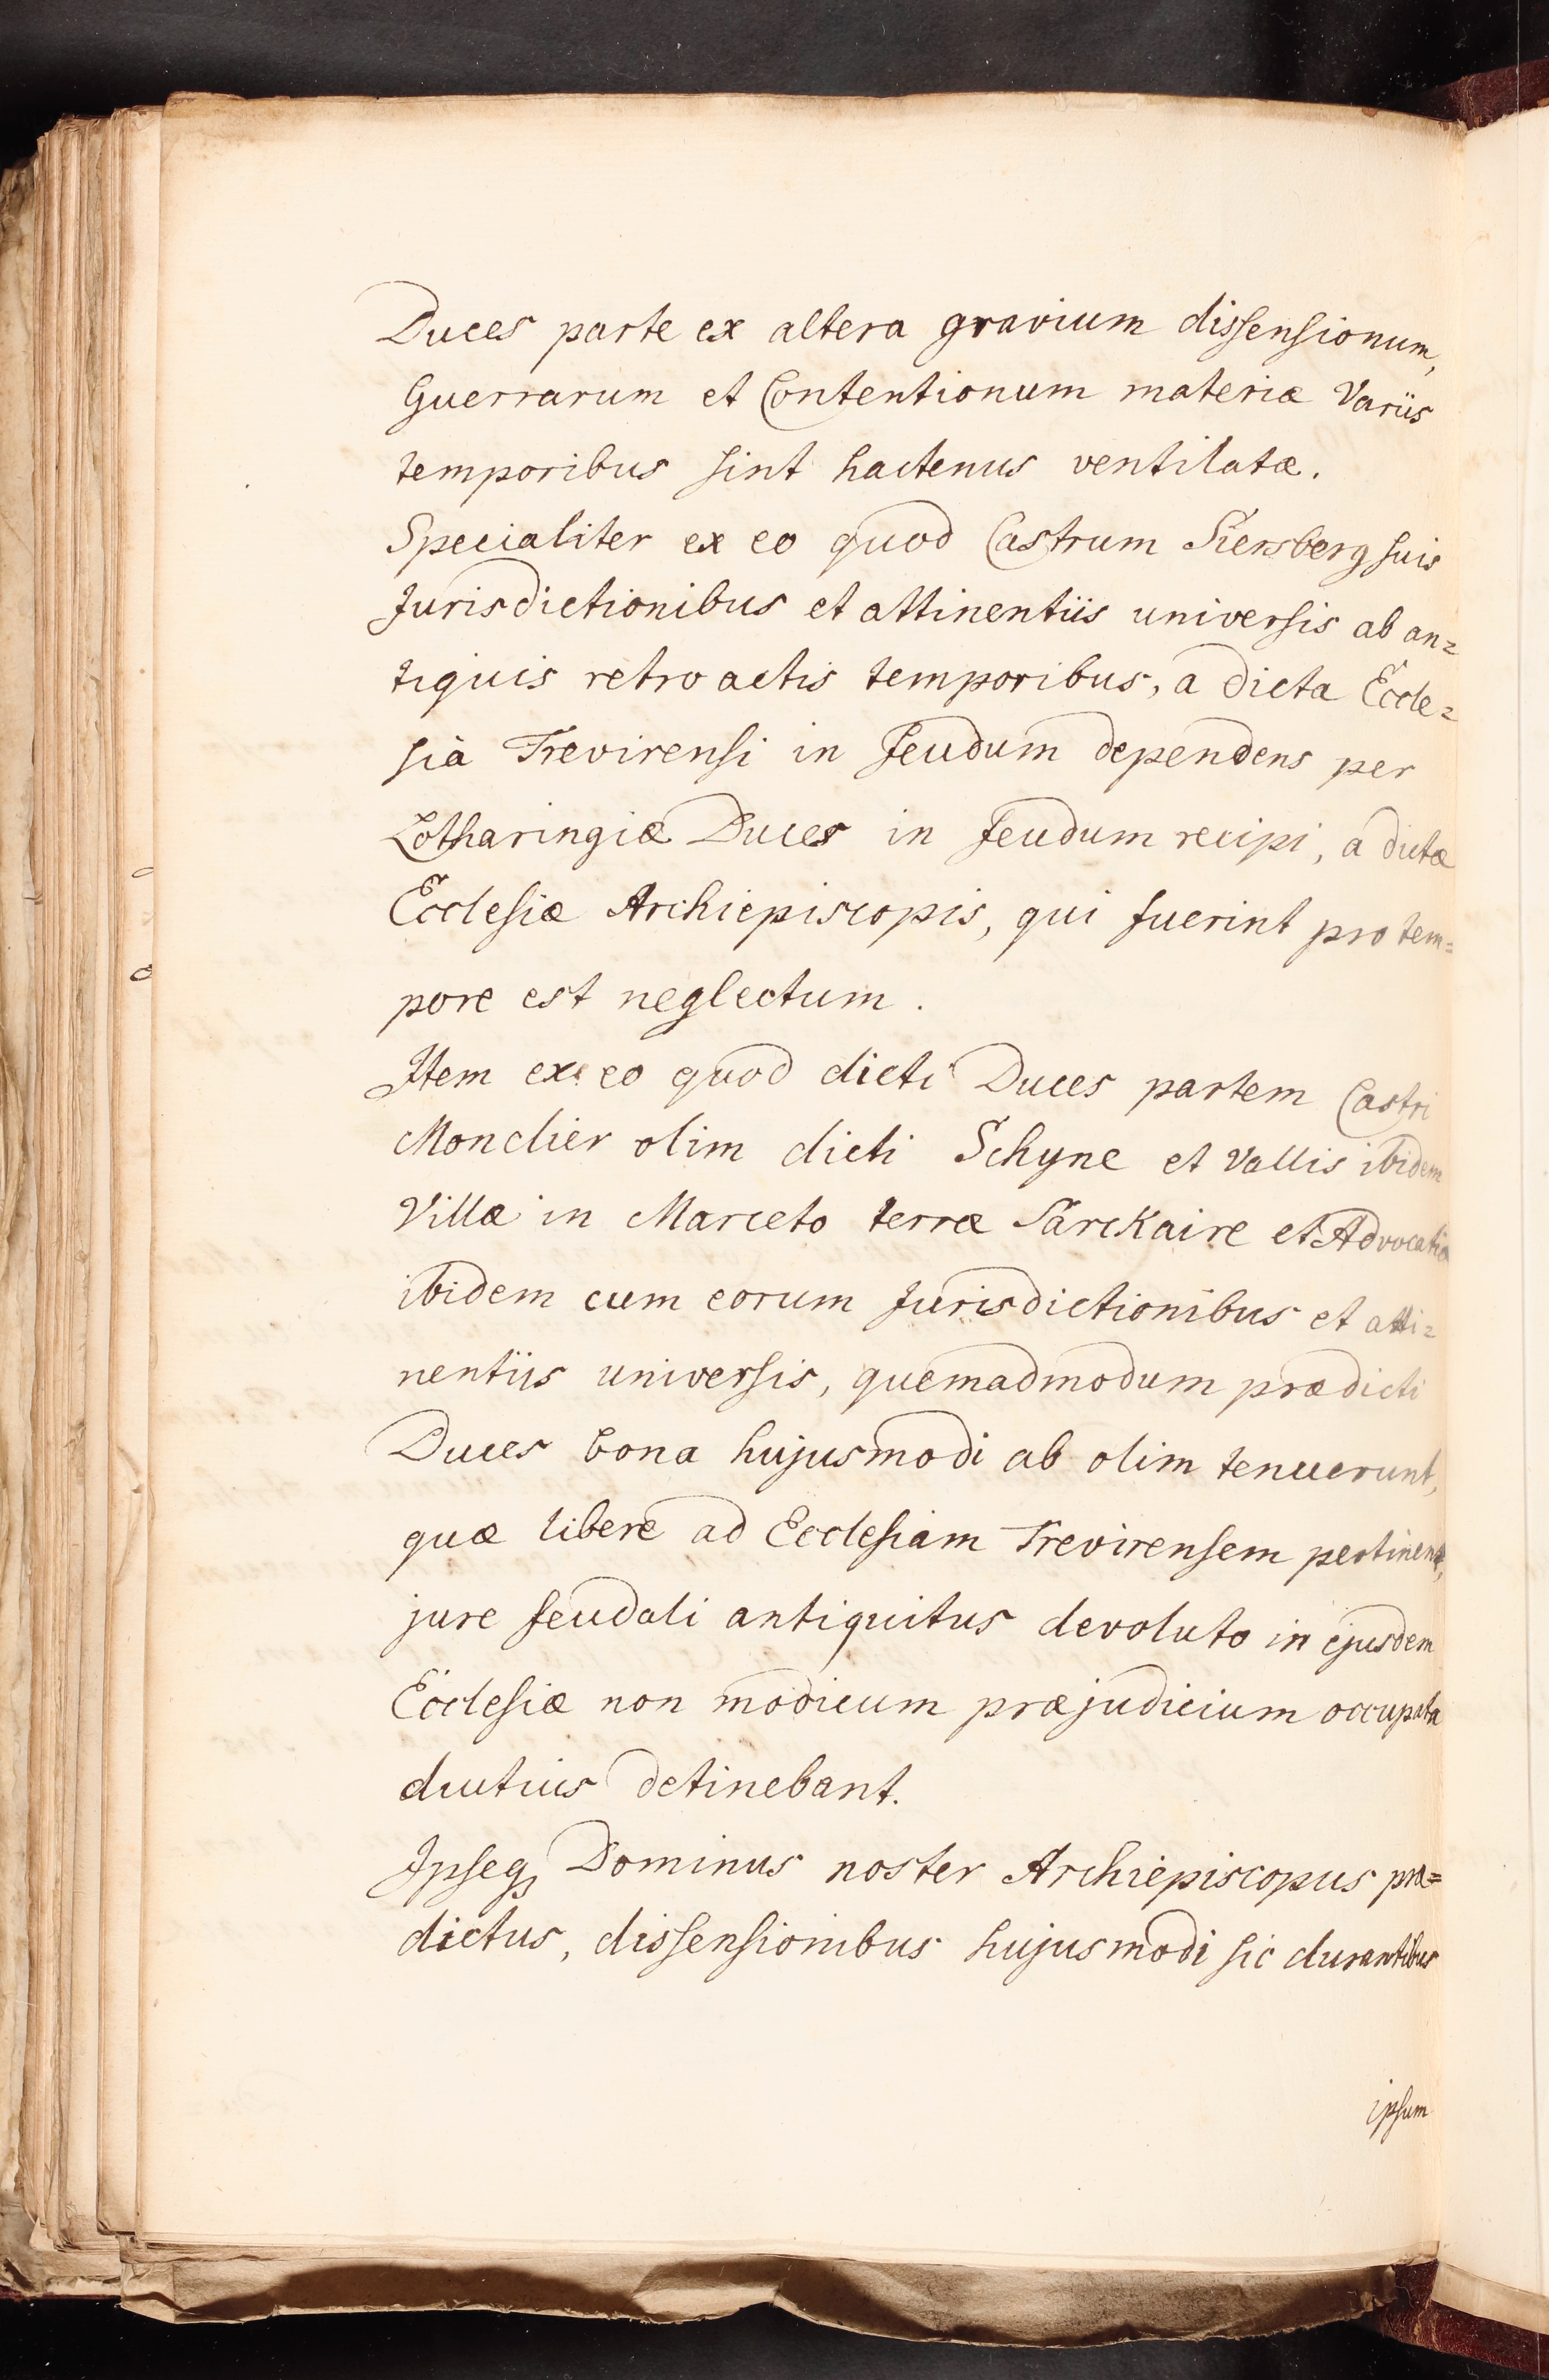 Duces parte ex altera gravium dissensionum,
Guerrarum et Contentionum materiæ Variis
temporibus sint hactenus ventilatæ.
Specialiter ex eo quod Castrum Siersberg suis
Jurisdictionibus et attinentiis universis ab an=
tiquis retro actis temporibus, a dicta Eccle=
sià Trevirensi in feudum dependens per
Lotharingiæ Duces in feudum recipi, a dictæ
Ecclesiæ Archiepiscopis, qui fuerint pro tem=
pore est neglectum.
Item ex eo quod dicti Duces partem Castri
Monclier olim dicti Schyne et Vallis ibidem
Villæ in Marceto terræ Sarckaire et Advocatia
ibidem cum eorum Jurisdictionibus et atti=
nentiis universis, quemadmodum prædicti
Duces bona hujusmodi ab olim tenuerunt,
quæ libere ad Ecclesiam Trevirensem pertinent,
jure feudali antiquitus devoluto in ejusdem
Ecclesiæ non modicum præjudicium occupata
diutius detinebant.
Ipseq3 Dominus noster Archiepiscopus præ=
dictus, dissensionibus hujusmodi sic durantibus
ipsum